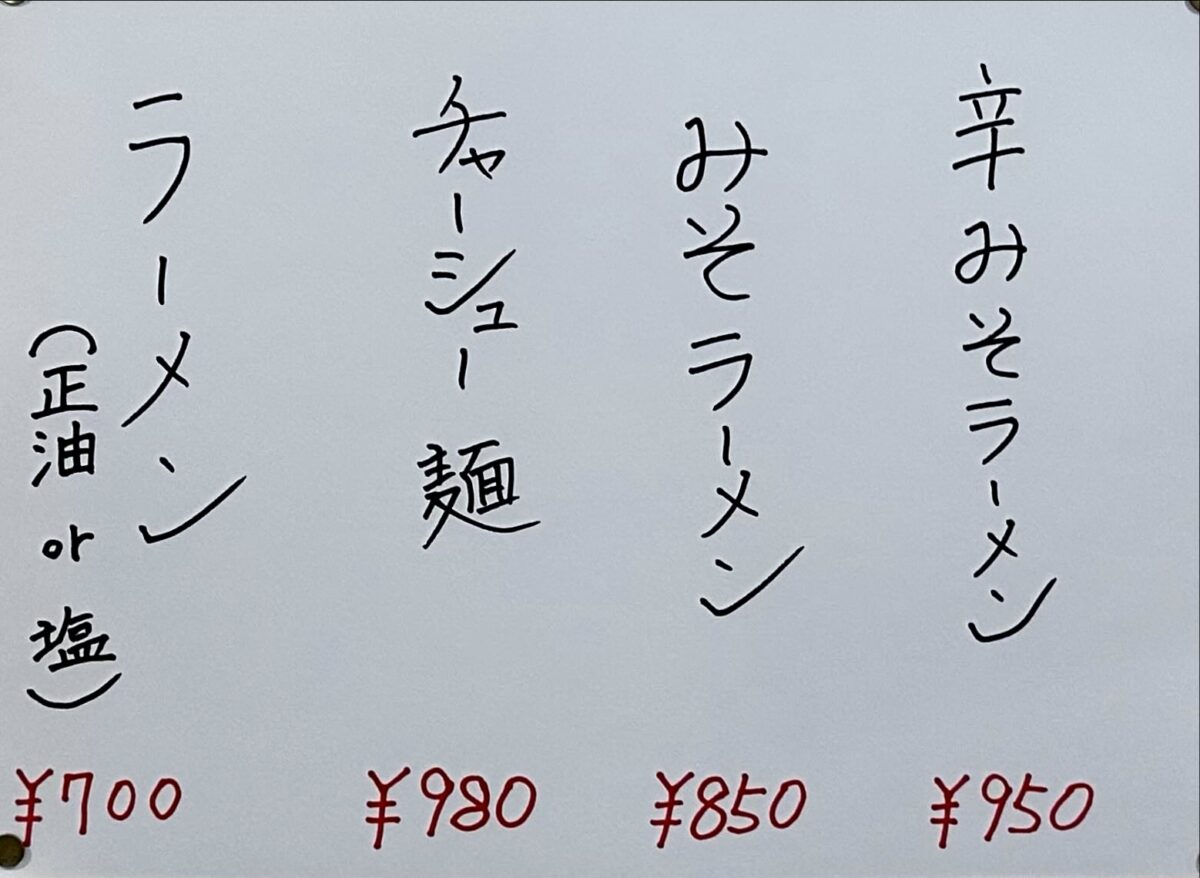 辛みそラーメン
¥950
みそラーメン
¥850
チャーシュー麺
¥980
ラーメン
(正油 or 塩)
¥700